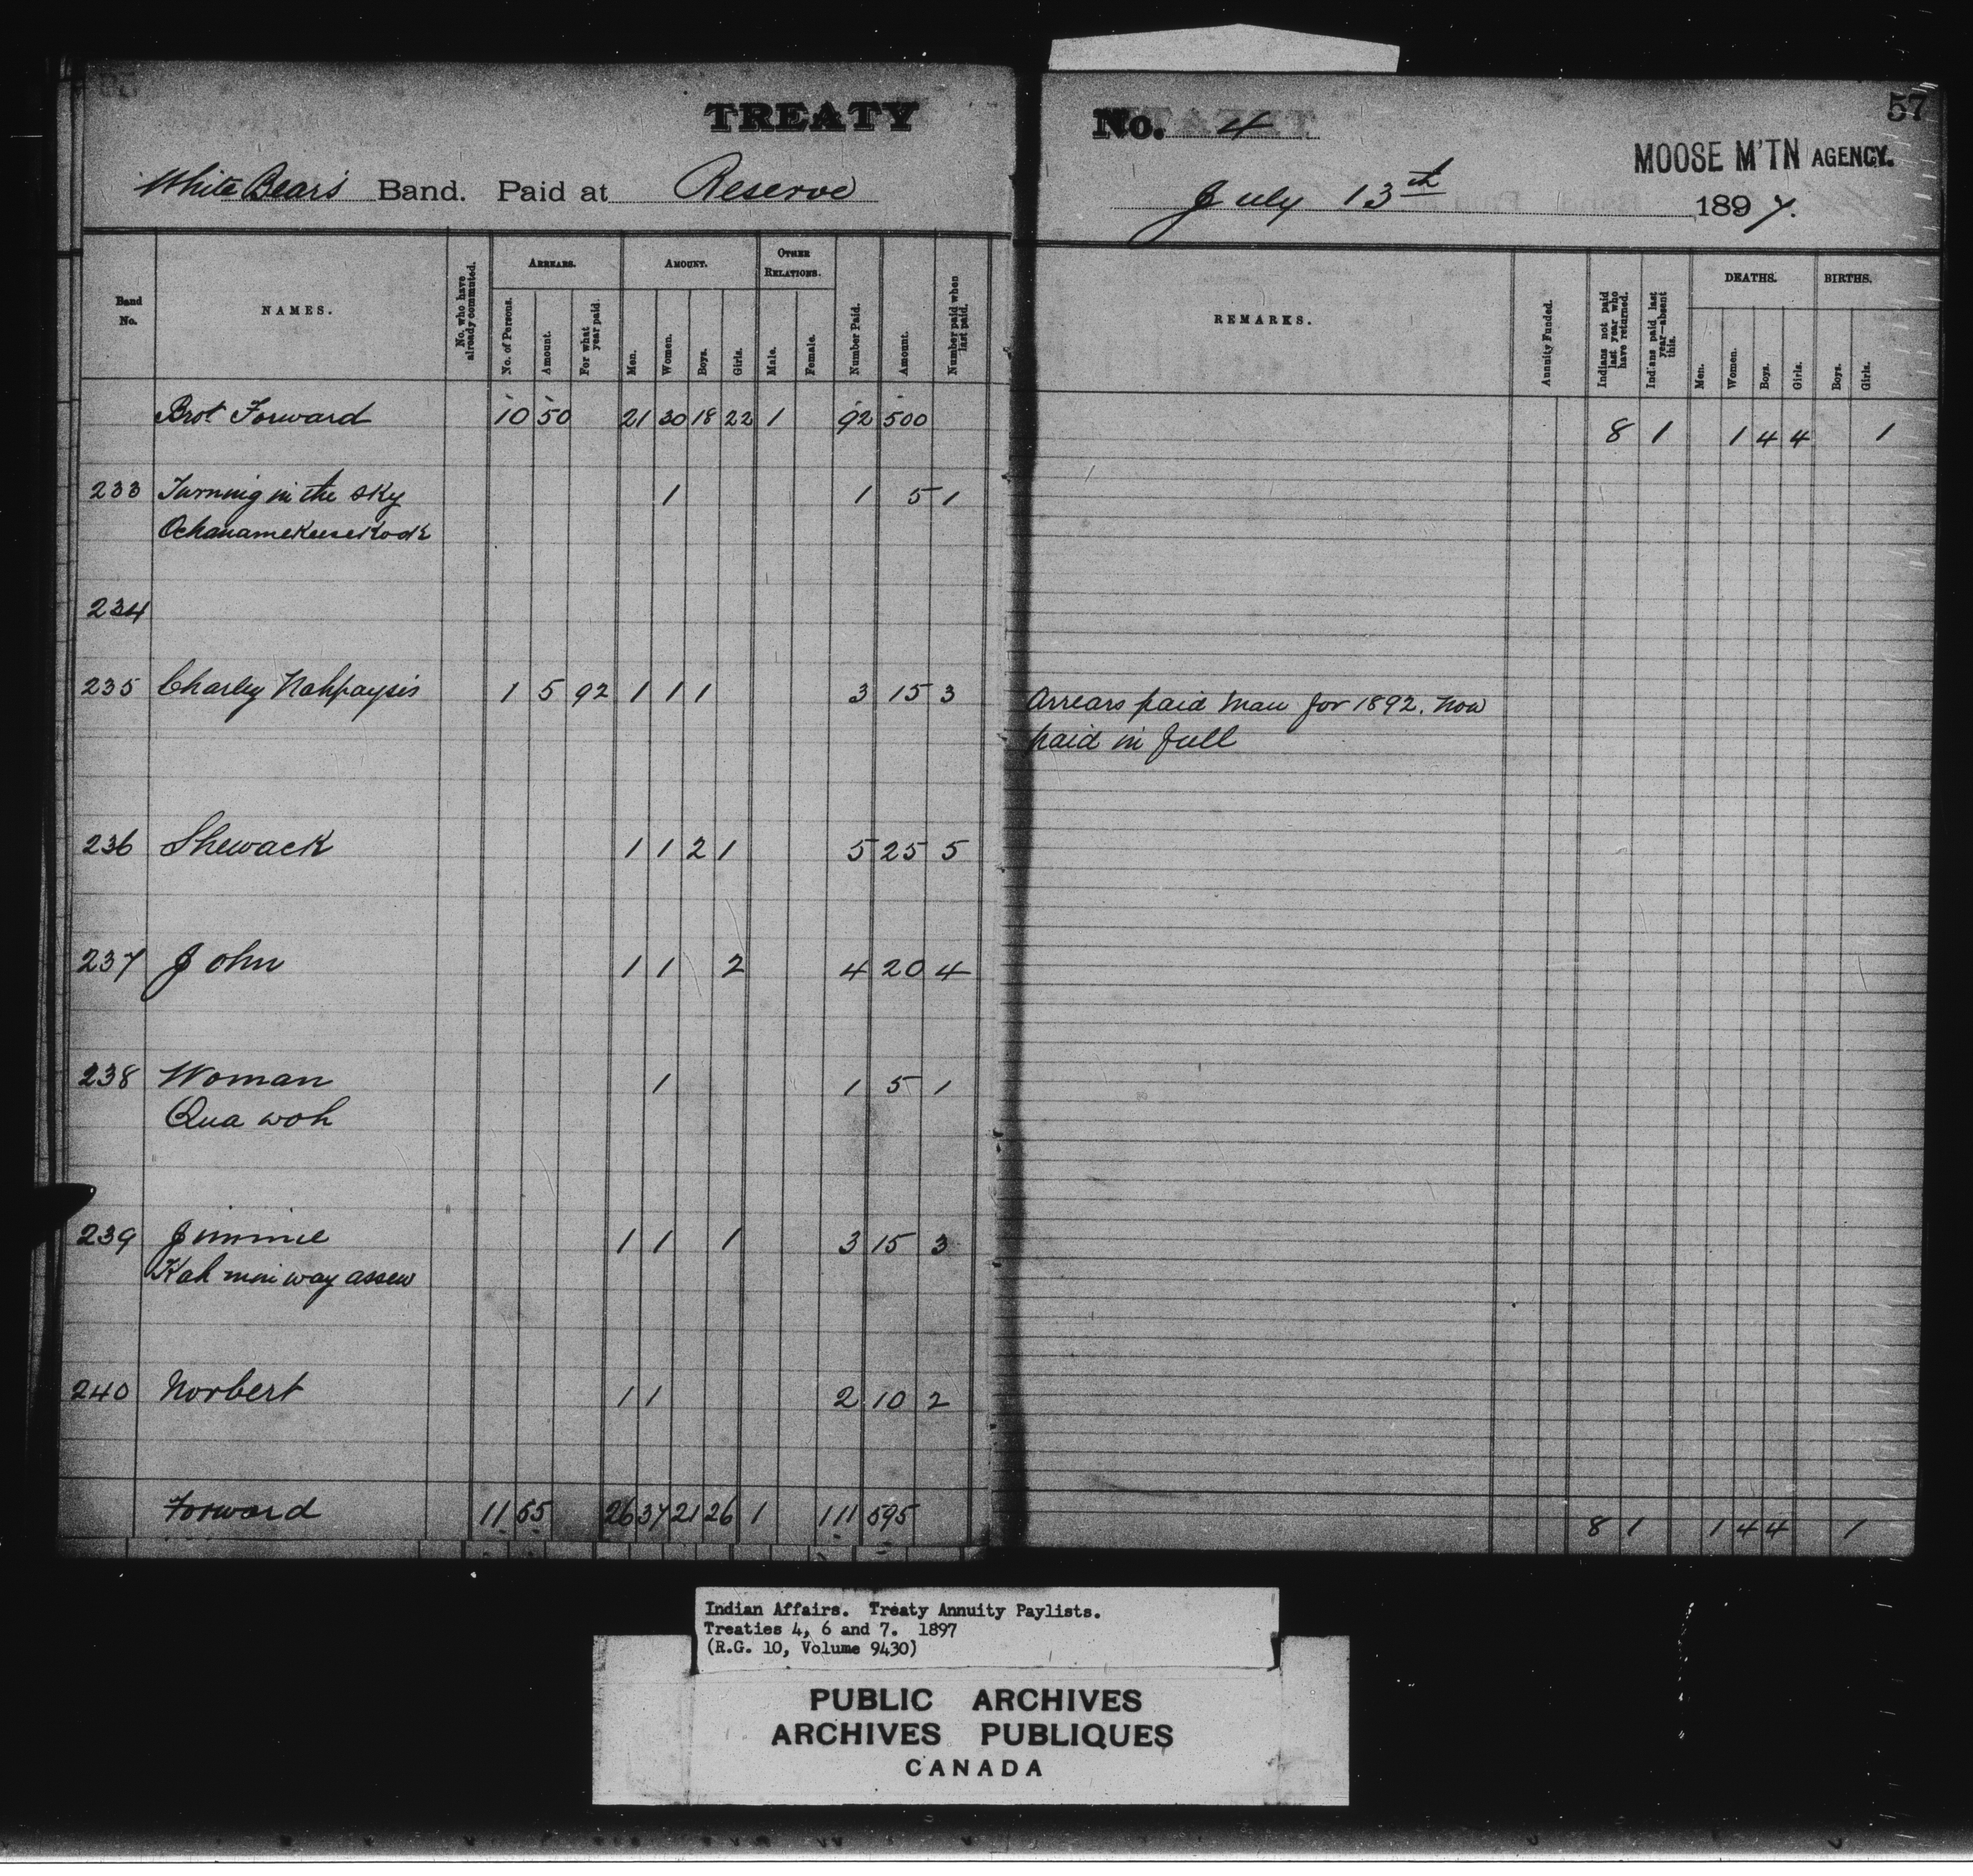 TREATY
No. 4
57
MOOSE M'TN AGENCY.
White Bear's Band. Paid at Reserve
July 13th 1897.
Band No.
NAMES.
No. who have already commuted.
ARREARS.
No. of Persons.
Amount.
For what year paid.
AMOUNT.
Men.
Women.
Boys.
Girls.
OTHER RELATIONS.
Male.
Female.
Number Paid.
Amount.
Number paid when last paid.
REMARKS.
Annuity Funded.
Indians not paid last year who have returned.
Indians paid last year—absent this.
DEATHS.
Men.
Women.
Boys.
Girls.
BIRTHS.
Boys.
Girls.
Brot Forward 10 50 21 30 18 22 1 92 500 8 1 1 4 4 1
233 Turning in the Sky 1 1 5 1
Ochanamekeesekook
234
235 Charley Nahpaysis 1 5 92 1 1 1 3 15 3 Arrears paid Man for 1892. Now
paid in full
236 Shewack 1 1 2 1 5 25 5
237 John 1 1 2 4 20 4
238 Woman 1 1 5 1
Qua woh
239 Jimmie 1 1 1 3 15 3
Kah mini way assew
240 Norbert 1 1 2 10 2
Forward 11 55 26 37 21 26 1 111 595 8 1 1 4 4 1
Indian Affairs. Treaty Annuity Paylists.
Treaties 4, 6 and 7. 1897
(R.G. 10, Volume 9430)
PUBLIC ARCHIVES
ARCHIVES PUBLIQUES
CANADA